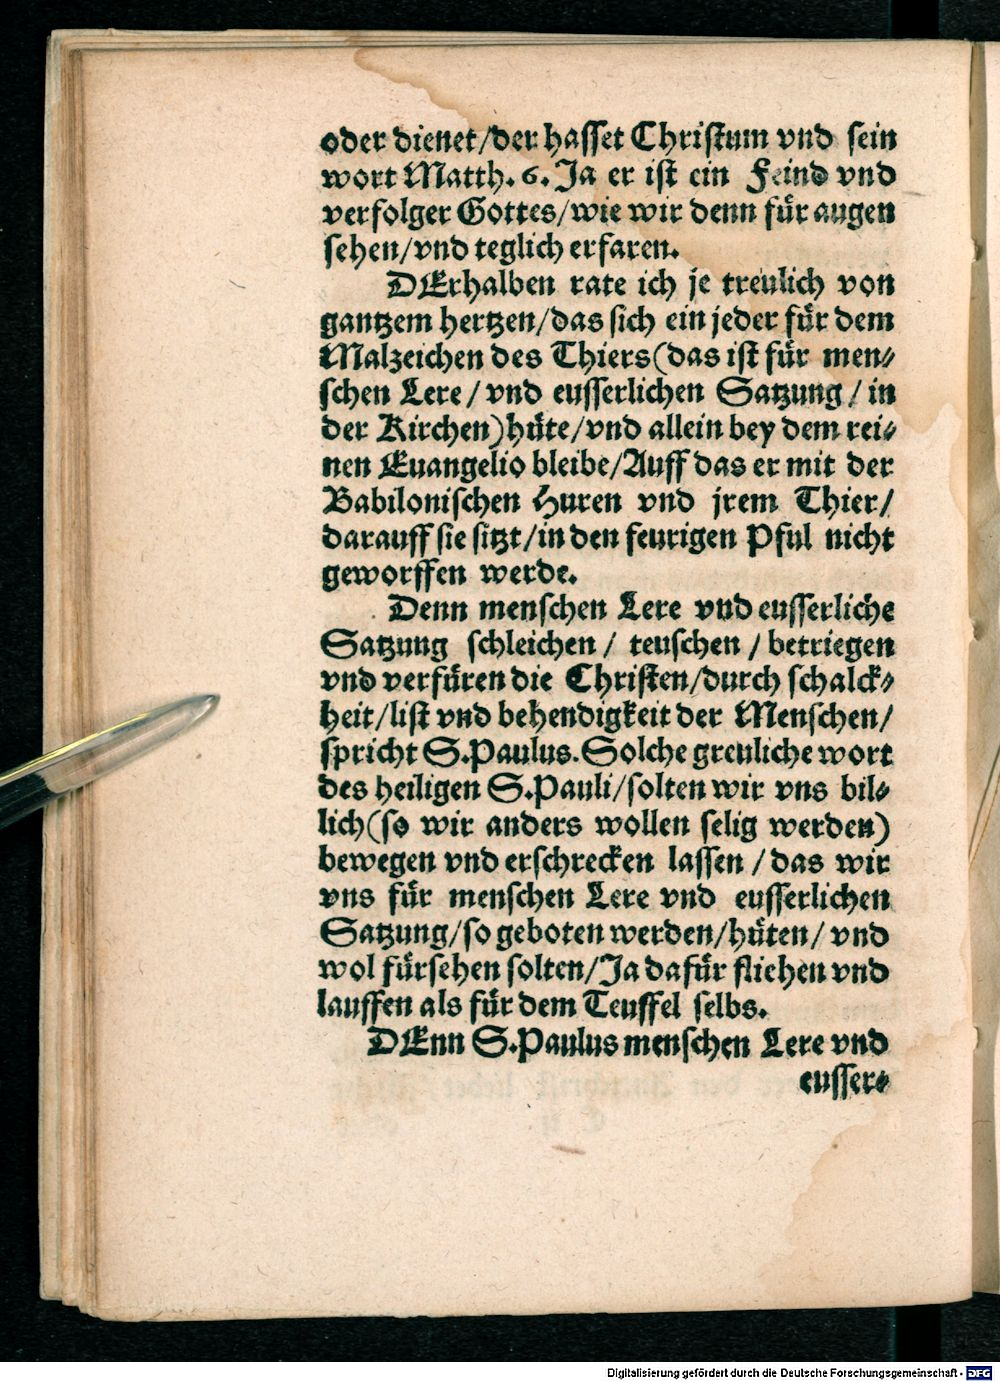 oder dienet/der hasset Christum vnd sein
wort Matth. 6. Ja er ist ein Feind vnd
verfolger Gottes/wie wir denn für augen
sehen/vnd teglich erfaren.
DErhalben rate ich je treulich von
gantzem hertzen/das sich ein jeder für dem
Malzeichen des Thiers(das ist für men⸗
schen Lere/vnd eusserlichen Satzung/in
der Kirchen)hüte/vnd allein bey dem rei⸗
nen Euangelio bleibe/Auff das er mit der
Babilonischen Huren vnd jrem Thier/
darauff sie sitzt/in den feurigen Pful nicht
geworffen werde.
Denn menschen Lere vnd eusserliche
Satzung schleichen/ teuschen/betriegen
vnd verfüren die Christen/durch schalck⸗
heit/list vnd behendigkeit der Menschen/
spricht S.Paulus. Solche greuliche wort
des heiligen S.Pauli/solten wir vns bil⸗
lich(so wir anders wollen selig werden)
bewegen vnd erschrecken lassen/das wir
vns für menschen Lere vnd eusserlichen
Satzung/so geboten werden/hüten/ vnd
wol fürsehen solten/Ja dafür fliehen vnd
lauffen als für dem Teuffel selbs.
DEnn S.Paulus menschen Lere vnd
eusser⸗
Digitalisierung gefördert durch die Deutsche Forschungsgemeinschaft - DFG